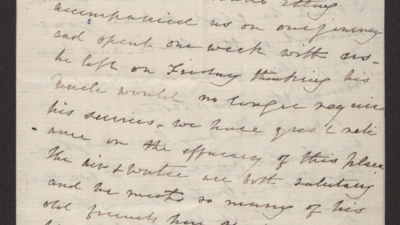 accompanied us on our journey
and spent one week with us -
he left on Friday thinking his
Uncle would no longer require
his services - we have great reli
ance on the efficacy of this place
the air & water are both salutary
and he meets so many of his
old friends